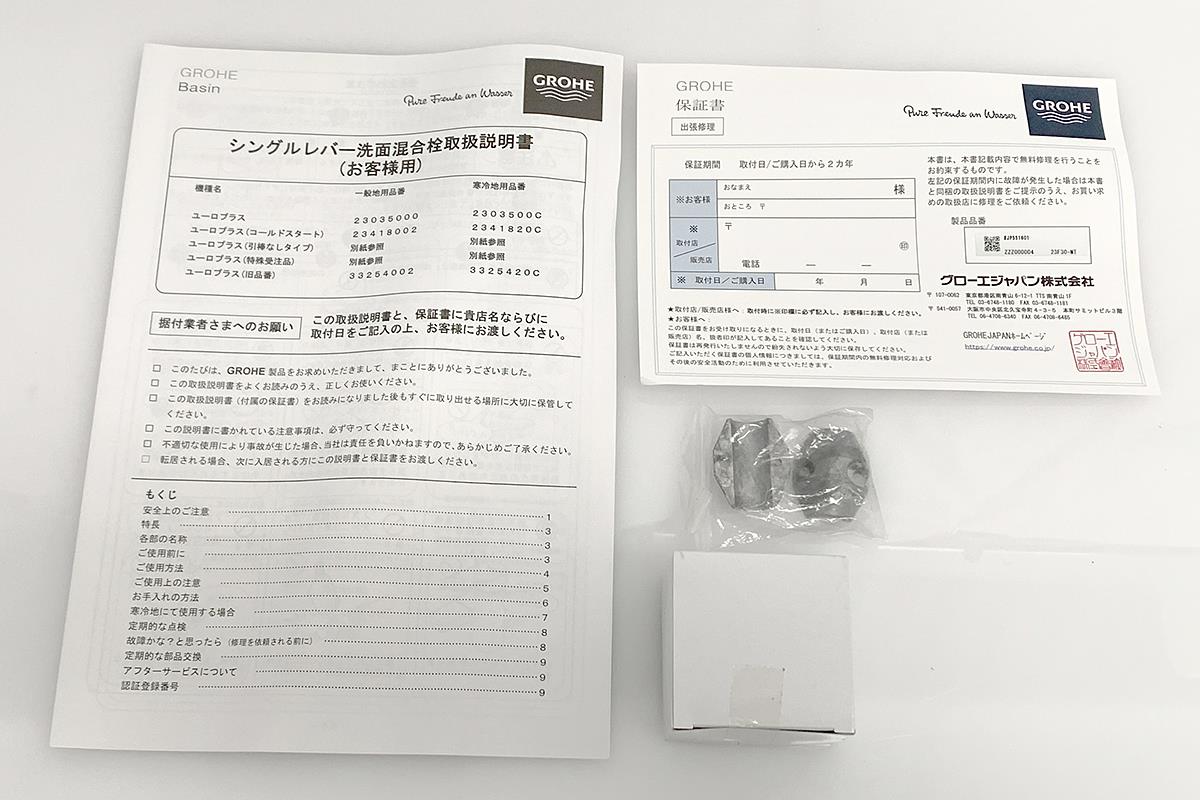 GROHE
Basin
Pure Freude an Wasser
GROHE
シングルレバー洗面混合栓取扱説明書
(お客様用)
機種名 一般地用品番 寒冷地用品番
ユーロプラス 23035000 2303500C
ユーロプラス(コールドスタート) 23418002 2341820C
ユーロプラス(引棒なしタイプ) 別紙参照 別紙参照
ユーロプラス(特殊受注品) 別紙参照 別紙参照
ユーロプラス(旧品番) 33254002 3325420C
据付業者さまへのお願い
この取扱説明書と、保証書に貴店名ならびに
取付日をご記入の上、お客様にお渡しください。
□ このたびは、GROHE 製品をお求めいただきまして、まことにありがとうございました。
□ この取扱説明書をよくお読みのうえ、正しくお使いください。
□ この取扱説明書(付属の保証書)をお読みになりました後もすぐに取り出せる場所に大切に保管して
ください。
□ この説明書に書かれている注意事項は、必ず守ってください。
□ 不適切な使用により事故が生じた場合、当社は責任を負いかねますので、あらかじめご了承ください。
□ 転居される場合、次に入居される方にこの説明書と保証書をお渡しください。
もくじ
安全上のご注意 1
特長 3
各部の名称 3
ご使用前に 3
ご使用方法 4
ご使用上の注意 5
お手入れの方法 6
寒冷地にて使用する場合 7
定期的な点検 8
故障かな?と思ったら(修理を依頼される前に) 8
定期的な部品交換 9
アフターサービスについて 9
認証登録番号 9
GROHE
保証書
出張修理
Pure Freude an Wasser
GROHE
保証期間 取付日/ご購入日から2カ年
※お客様
おなまえ 様
おところ 〒
※
取付店/販売店
〒
㊞
電話 — —
※ 取付日/ご購入日 年 月 日
本書は、本書記載内容で無料修理を行うことを
お約束するものです。
左記の保証期間内に故障が発生した場合は本書
と同梱の取扱説明書をご提示のうえ、お買い求
めの取扱店に修理をご依頼ください。
製品品番
#JP551601
ZZZ000004 23F30-WT
グローエジャパン株式会社
〒107-0062 東京都港区南青山 6-12-1 TTS 南青山 1F
TEL 03-6748-1180 FAX 03-6748-1181
〒541-0057 大阪市中央区北久宝寺町 4-3-5 本町サミットビル3階
TEL 06-4708-6340 FAX 06-4708-6465
GROHEJAPANホームページ
https://www.grohe.co.jp/
★取付店/販売店様へ:取付時に※印欄に必ず記入し、お客様にお渡しください。
★お客様へ:
この保証書をお受け取りになるときに、取付日(またはご購入日)、取付店(または
販売店)名、扱者印が記入してあることを確認してください。
保証書は再発行いたしませんので紛失されないよう大切に保存してください。
ご記入いただく保証書の個人情報につきましては、保証期間内の無料修理対応および
その後の安全活動のために利用させていただきます。